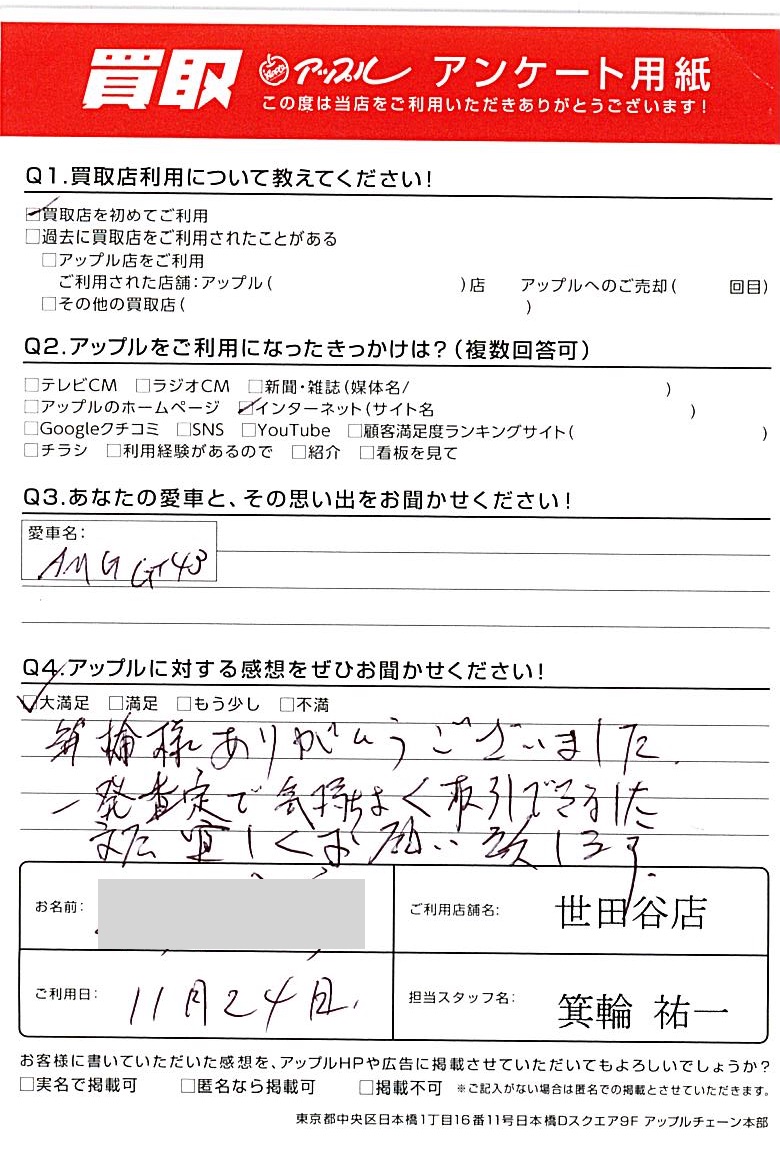 買取 アップル アンケート用紙
この度は当店をご利用いただきありがとうございます!
Q1.買取店利用について教えてください!
☑買取店を初めてご利用
□過去に買取店をご利用されたことがある
□アップル店をご利用
ご利用された店舗:アップル( )店 アップルへのご売却( 回目)
□その他の買取店( )
Q2.アップルをご利用になったきっかけは?(複数回答可)
□テレビCM □ラジオCM □新聞・雑誌(媒体名/ )
□アップルのホームページ ☑インターネット(サイト名 )
□Googleクチコミ □SNS □YouTube □顧客満足度ランキングサイト( )
□チラシ □利用経験があるので □紹介 □看板を見て
Q3.あなたの愛車と、その思い出をお聞かせください!
愛車名:
AMG GT43
Q4.アップルに対する感想をぜひお聞かせください!
☑大満足 □満足 □もう少し □不満
箕輪様ありがとうございました.
一発査定で気持ちよく取引できました
また宜しくお願い致します.
お名前:
ご利用店舗名: 世田谷店
ご利用日: 11月24日.
担当スタッフ名: 箕輪 祐一
お客様に書いていただいた感想を、アップルHPや広告に掲載させていただいてもよろしいでしょうか?
□実名で掲載可 □匿名なら掲載可 □掲載不可 ※ご記入がない場合は匿名での掲載とさせていただきます。
東京都中央区日本橋1丁目16番11号日本橋Dスクエア9F アップルチェーン本部